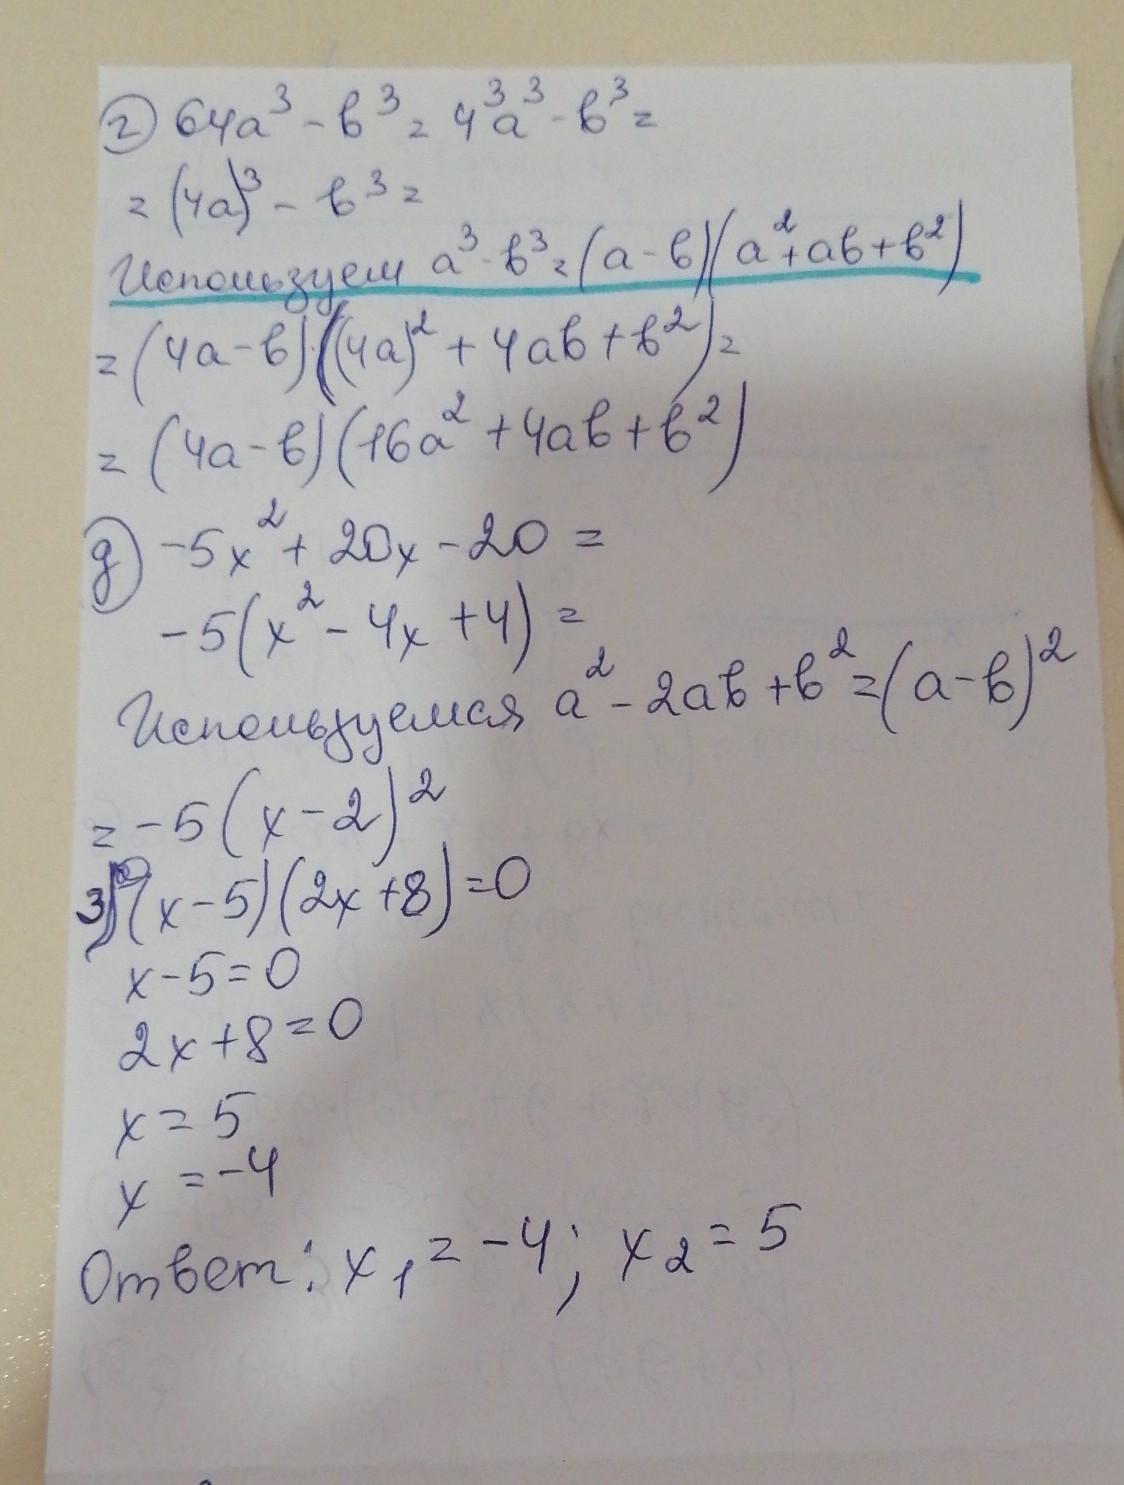 г) 64a³ - в³ = 4³a³ - в³ =
= (4a)³ - в³ =
Используем a³ - в³ = (a - в)(a² + aв + в²)
= (4a - в)·((4a)² + 4aв + в²) =
= (4a - в)(16a² + 4aв + в²)
д) -5x² + 20x - 20 =
-5(x² - 4x + 4) =
Используемся a² - 2aв + в² = (a - в)²
= -5(x - 2)²
3) (x - 5)(2x + 8) = 0
x - 5 = 0
2x + 8 = 0
x = 5
x = -4
Ответ: x₁ = -4; x₂ = 5